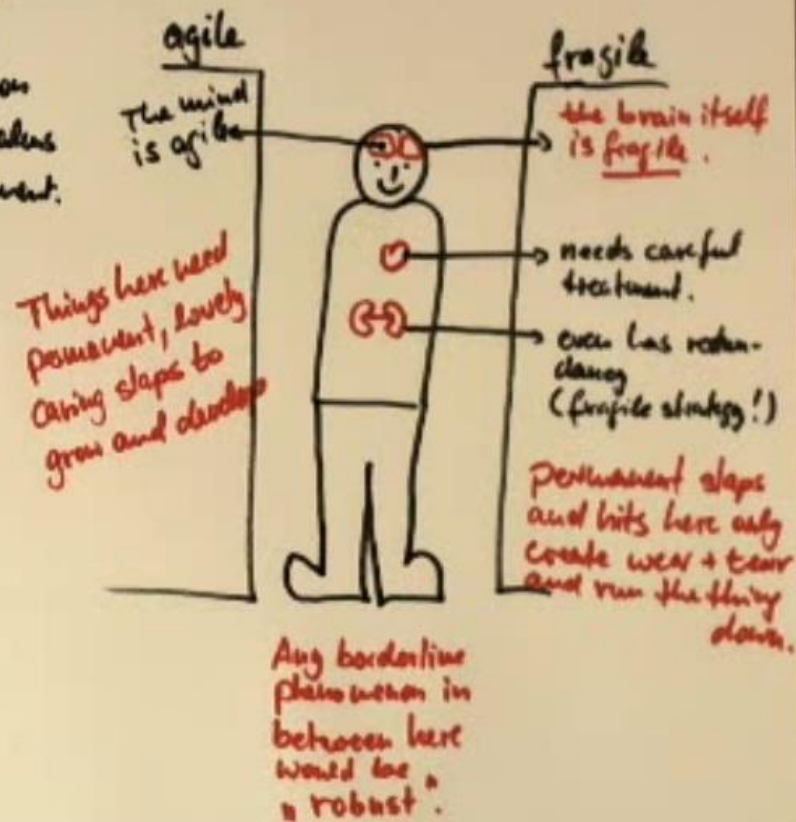 agile
The mind
is agile
Things here need
permanent, lovely
caring slaps to
grow and develop
fragile
the brain itself
is fragile.
needs careful
treatment.
even has redun-
dancy
(fragile strategy!)
permanent slaps
and hits here only
create wear + tear
and run the thing
down.
Any borderline
phenomenon in
between here
would be
„robust".